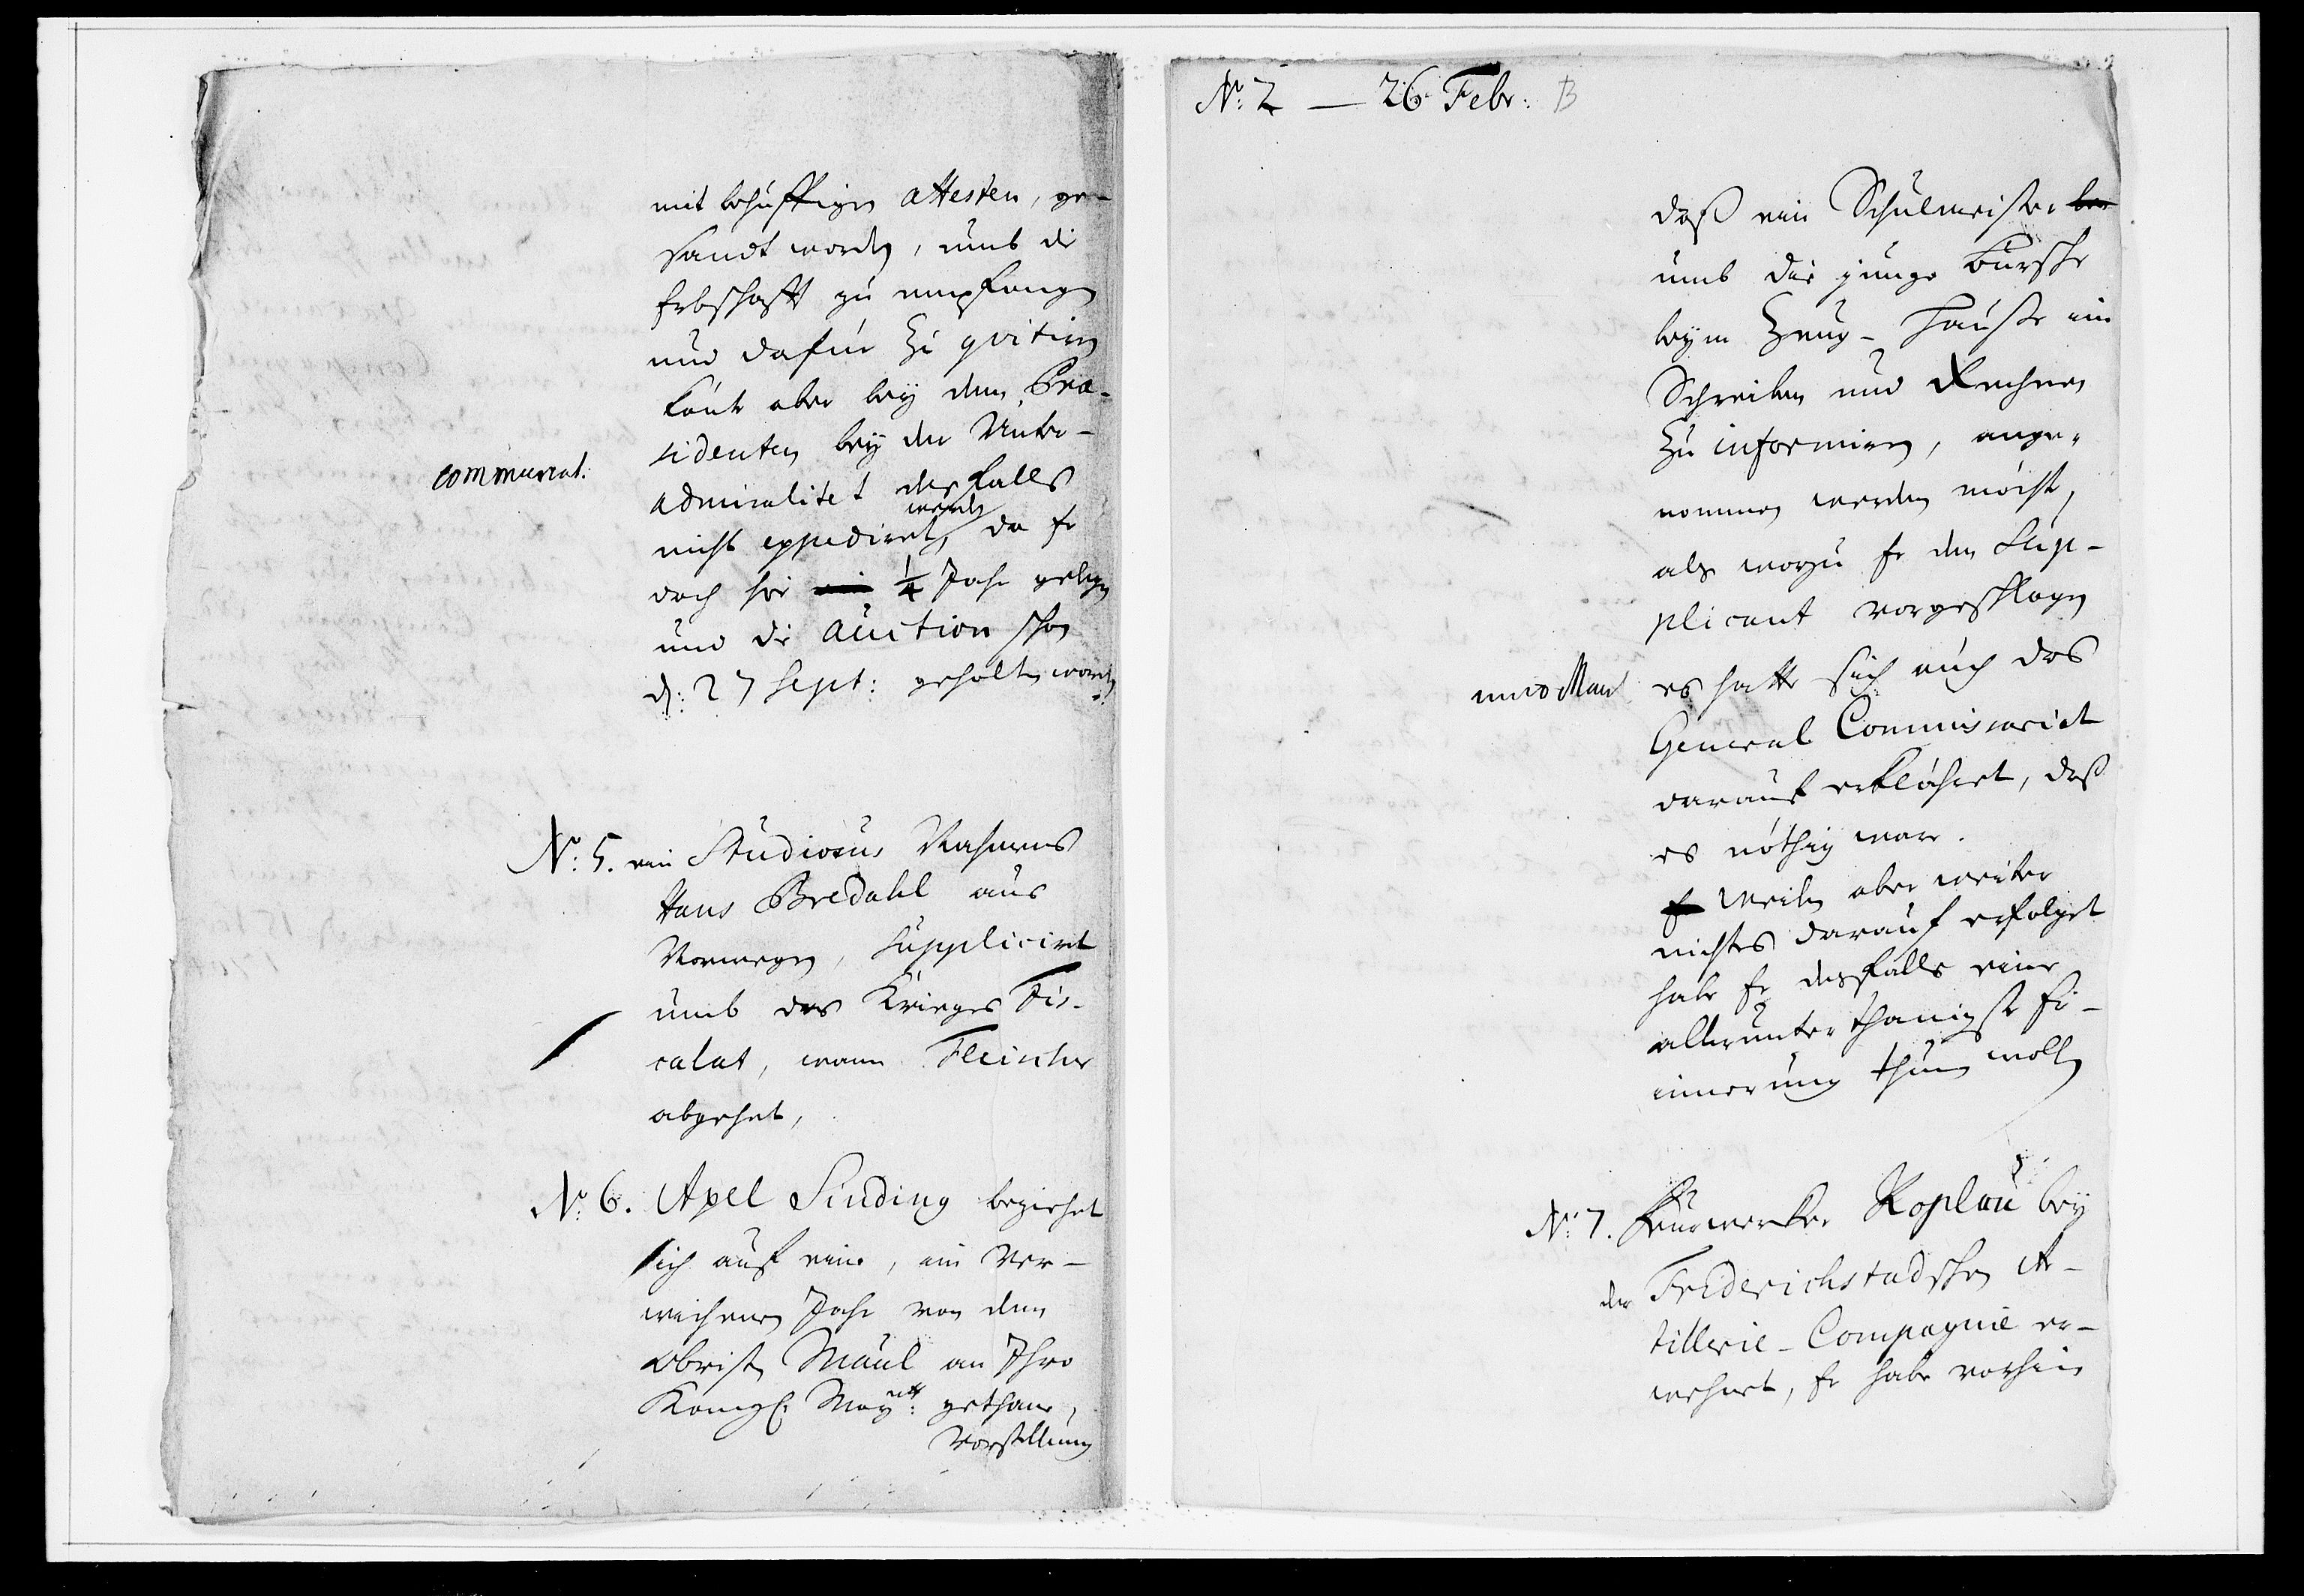 mit behuffigen attesten, ge-
sandt worden, umb die
Erbschafft zu empfangen
und dafür zu qvitiren
könte aber bey dem Præ-
sidenten bey der Unter-
communicat:
admiralitet desfalls
nicht expediret werden, da Er
doch hie 1/4 Jahr gelegen
und die auction schon
d: 27 Sept: gehalten worden
No: 5. ein Studiosus Nahmens
Hans Bredahl aus
Norwegen, supplicirt
umb das Krieges Fis-
calat, wann Fleischer
abgehet,
No: 6. Axel Sinding beziehet
sich auf eine, im ver-
wichenen Jahr von dem
Obristen Maul an Ihro
Königl: Mayett: gethane,
Vorstellung
No: 2 — 26 Febr: B
daß ein Schulmeister
umb die junge Bursche
beym Zeug-Hause im
Schreiben und Rechnen
zu informiren, ange-
nommen werden möcht,
als wozu Er den Sup-
plicant vorgeschlagen
es hatte sich auch das
General Commissariat
darauf erklähret, daß
es nöthig ware.
Weilen aber weiter
nichtes darauf erfolget
habe Er desfalls eine
allerunterthänigste Er-
innerung thun wollen
No: 7. Feurwercker Roplau bey
der Friderichstadschen Ar-
tillerie-Compagnie er-
wehnet, Er habe vorhin